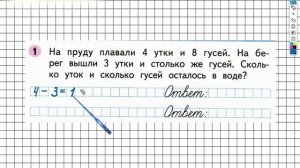 1 На пруду плавали 4 утки и 8 гусей. На бе-
рег вышли 3 утки и столько же гусей. Сколь-
ко уток и сколько гусей осталось в воде?
4 - 3 = 1 Ответ:
Ответ: